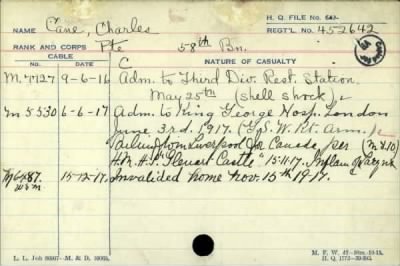 H. Q. FILE No. 649-
NAME Cane, Charles REGT'L. No. 452642
RANK AND CORPS Pte 58th Bn.
CABLE
No. DATE NATURE OF CASUALTY
C
M.7127 9-6-16 Adm. to Third Div. Rest Station
May 25th (shell shock)
M5530 6-6-17 Adm. to King George Hosp. London
June 3rd. 1917. (G.S.W. Rt. Arm.)
Sailing from Liverpool for Canada per
H.M.H.S. "Glenart Castle" 15-11-17.
M6487. 15-12-17. Invalided home Nov. 15th 1917.
L. L. Job 80307—M. & D. 8005.
M. F. W. 42
H. Q. 1772-39-893.